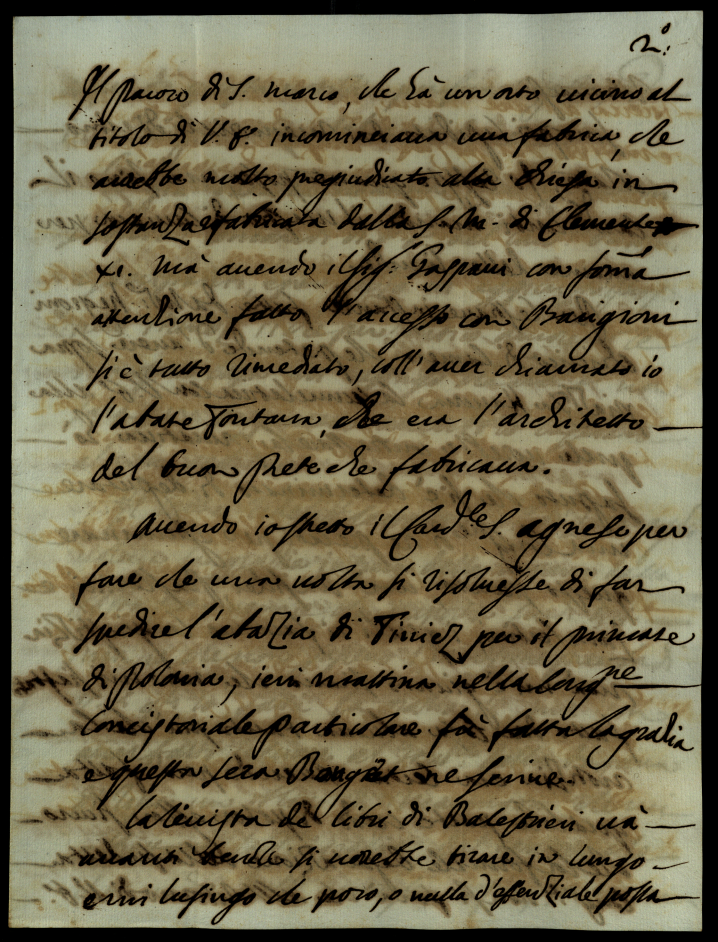 2.º
Il paroco di S. Marco, che hà un orto vicino al
titolo di V. E. incominciava una fabrica, che
avrebbe molto pregiudicato alla chiesa in
sostanza fabricata dalla S. M. di Clemente
XI. Mà avendo il Sig. Gaspari con somã
attenzione fatto l'accesso con Barigioni
si è tutto rimediato, coll'aver chiamato io
l'abate Fontana, che era l'architetto
del buon prete che fabricava.
Avendo io stretto il Card.le S. Agnese per
fare che una volta si risolvesse di far
spedire l'abazia di Tiniez per il primate
di Polonia, ieri mattina nella Cong.ne
Concistoriale particolare fù fatta la grazia
e questa sera ne scrive.
La revista de libri di Balestrieri và
avanti benche si vorrebbe tirare in lungo
e mi lusingo che poco, o nulla d'essenziale possa